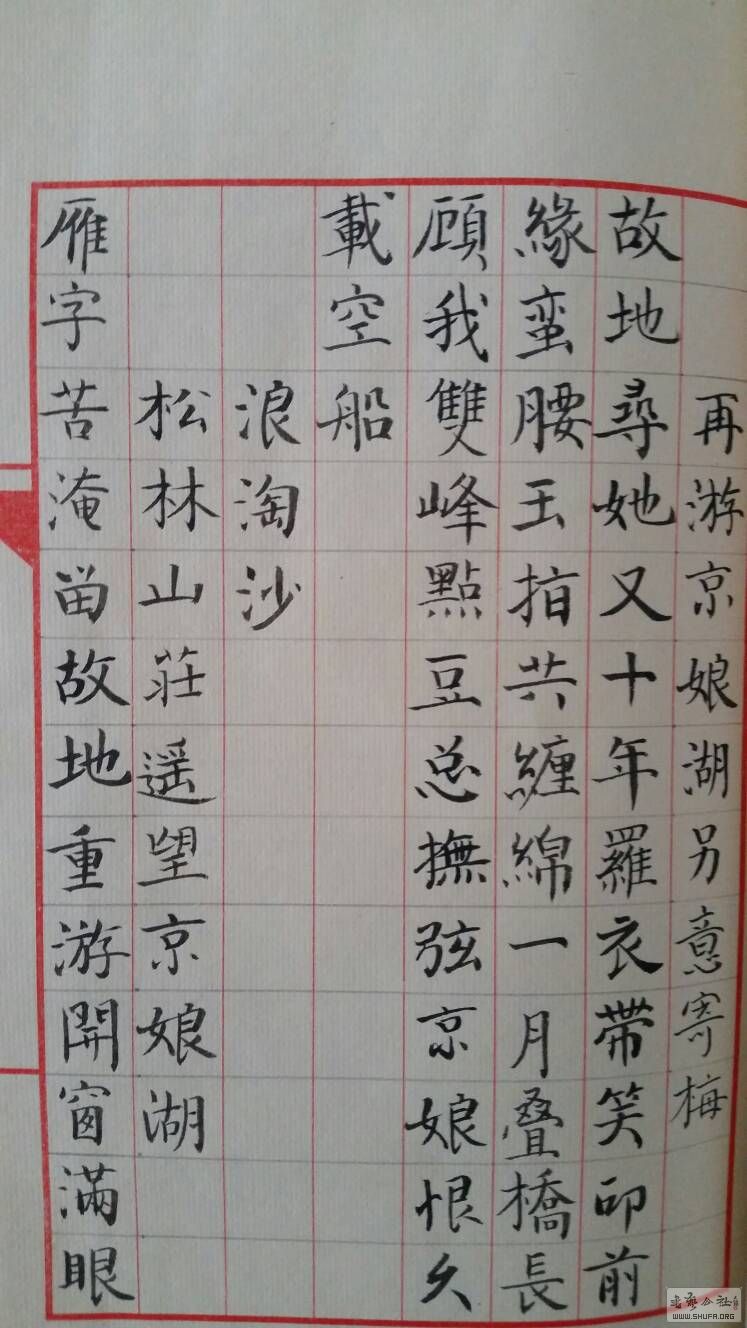 再游京娘湖另意寄梅
故地尋她又十年羅衣帶笑印前
緣蛮腰玉指共纏綿一月叠橋長
顧我雙峰點豆总撫弦京娘恨久
載空船
浪淘沙
松林山莊遥望京娘湖
雁字苦淹留故地重游開窗滿眼
WWW.SHUFA.ORG